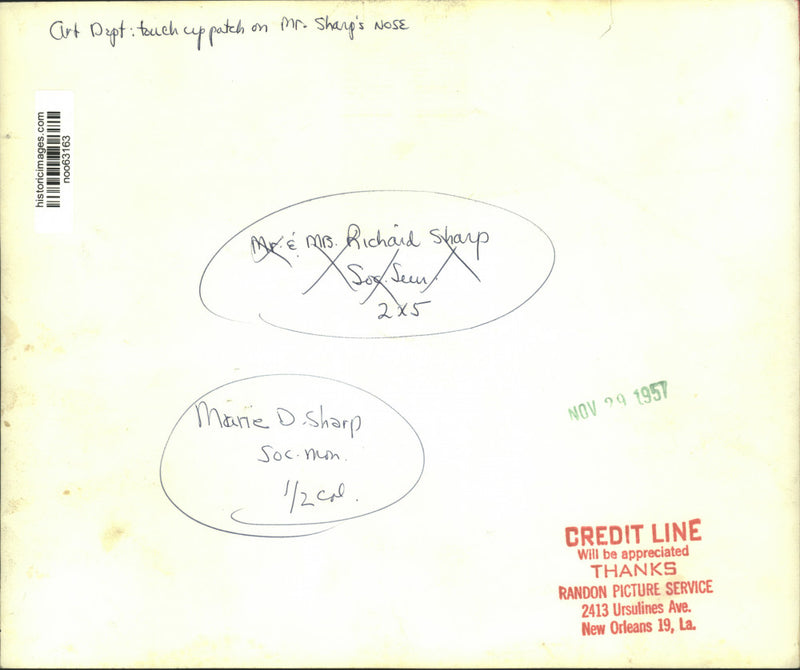 Art Dept: touch up patch on Mr. Sharp's NOSE
historicimages.com
noo63163
Mr. & MRS. Richard Sharp
Soc. Sun.
2x5
Marie D. Sharp
Soc. Mon.
1/2 col.
NOV 29 1957
CREDIT LINE
Will be appreciated
THANKS
RANDON PICTURE SERVICE
2413 Ursulines Ave.
New Orleans 19, La.